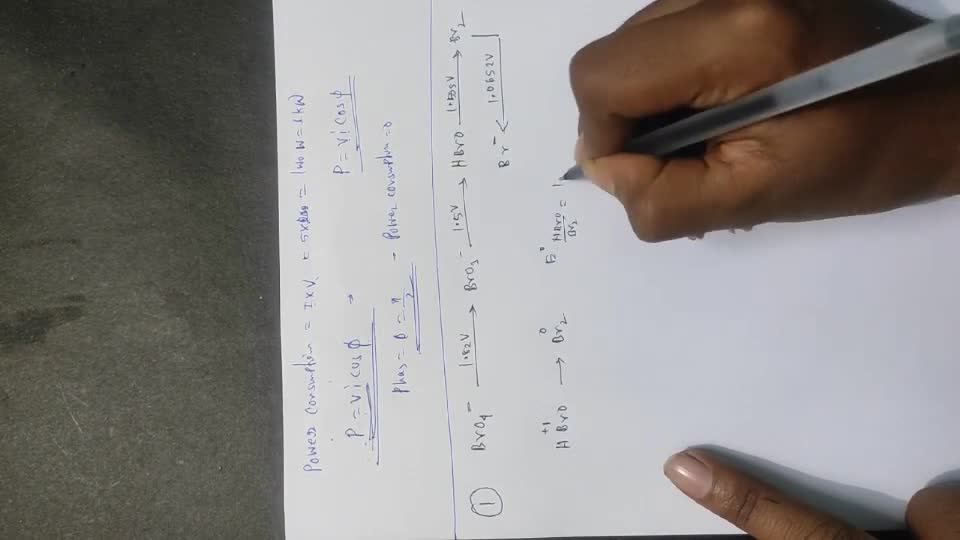 Power consumption = I x V = 5x200 = 1000 W = 1 kW
P = Vi cos φ → P = Vi cos φ
Phas = φ = π/2 - Power consumption = 0
① BrO₄⁻ —1.82V→ BrO₃⁻ —1.5V→ HBrO —1.595V→ Br₂
Br⁻ ← 1.0652V
+1 0
HBrO → Br₂ E° HBrO/Br₂ = 1